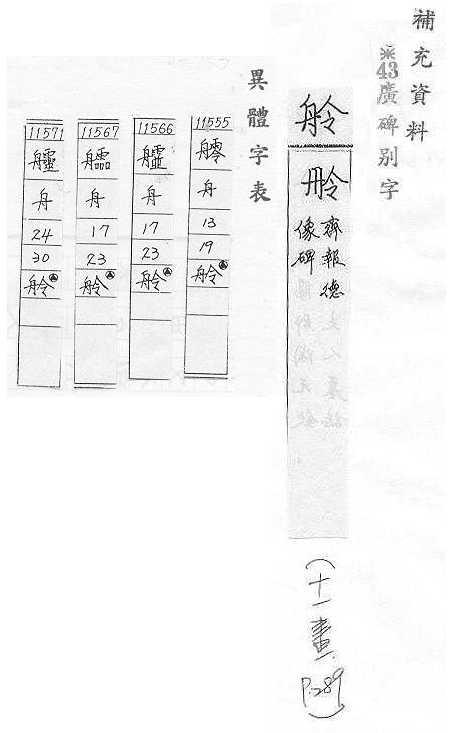 補充資料
※43廣碑別字
舲
齊報德
像碑
(十一畫
P.289)
異體字表
11555
舟
13
19
舲
11566
舟
17
23
舲
11567
舟
17
23
舲
11571
舟
24
30
舲